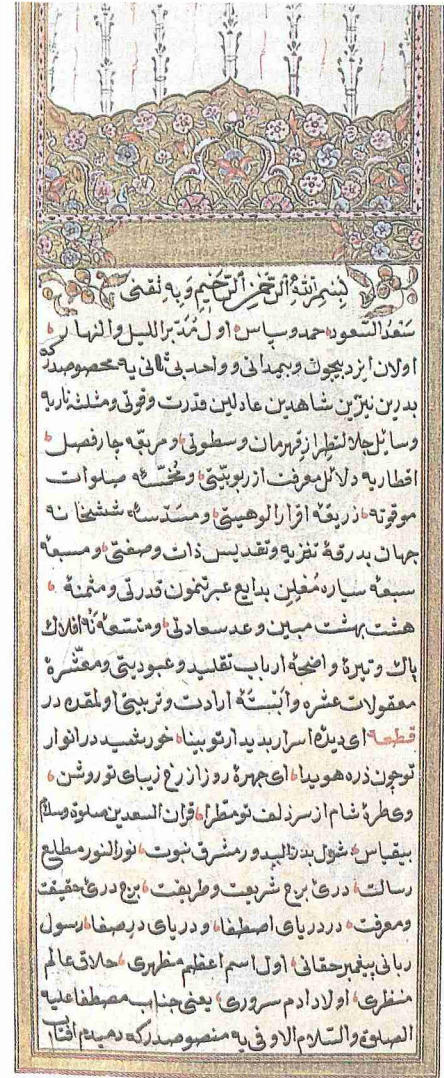 بسم الله الرحمن الرحيم وبه ثقتى
سعد السعود حمد وسپاس اول مدبر الليل والنهار
اولان ايزد بيچون وبيمدانى وواحد بى ثانى يه مخصوصدركه
بدرين نيرين شاهدين عادلين قدرت وقوتى ومثلثه ناريه
وسايل جلالتطراز قهرمان وسطوتى ومربعه چارفصل
اقطاريه دلائل معرفت ازربوبيتى ومخمسه صلوات
موقوته ذريعه اقرار الوهيتى ومسدسه ششخانه
جهان بدرقه تنزيه وتقديس ذات وصفتى ومسبعه
سبعه سياره معلن بدايع عبرتنمون قدرتى ومثمنه
هشت بهشت مبين وعد سعادتى ومتسعه نه افلاك
پاك وتيره واضحه ارباب تقليد وعبوديتى ومعشره
معقولات عشره وابسته ارادت وتربيتى اولمقده در
قطعه اى ديده اسرار بديدار توبينا خورشيد در انوار
توچون ذره هويدا اى چهره روز از رخ زيباى تو روشن
وى طره شام از سر زلف تو مطرا قران السعدين صلوة وسلام
بيقياس شول بدر البدور مشرق نبوت نور النور مطلع
رسالت درى برج شريعت وطريقت برج درى حقيقت
ومعرفت در درياى اصطفا ودرياى در صفا رسول
ربانى پيغمبر حقانى اول اسم اعظم مظهرى خلاق عالم
منظرى اولاد ادم سرورى يعنى جناب مصطفا عليه
الصلوة والسلام الاوفى يه منصوصدركه دميدم افتاب